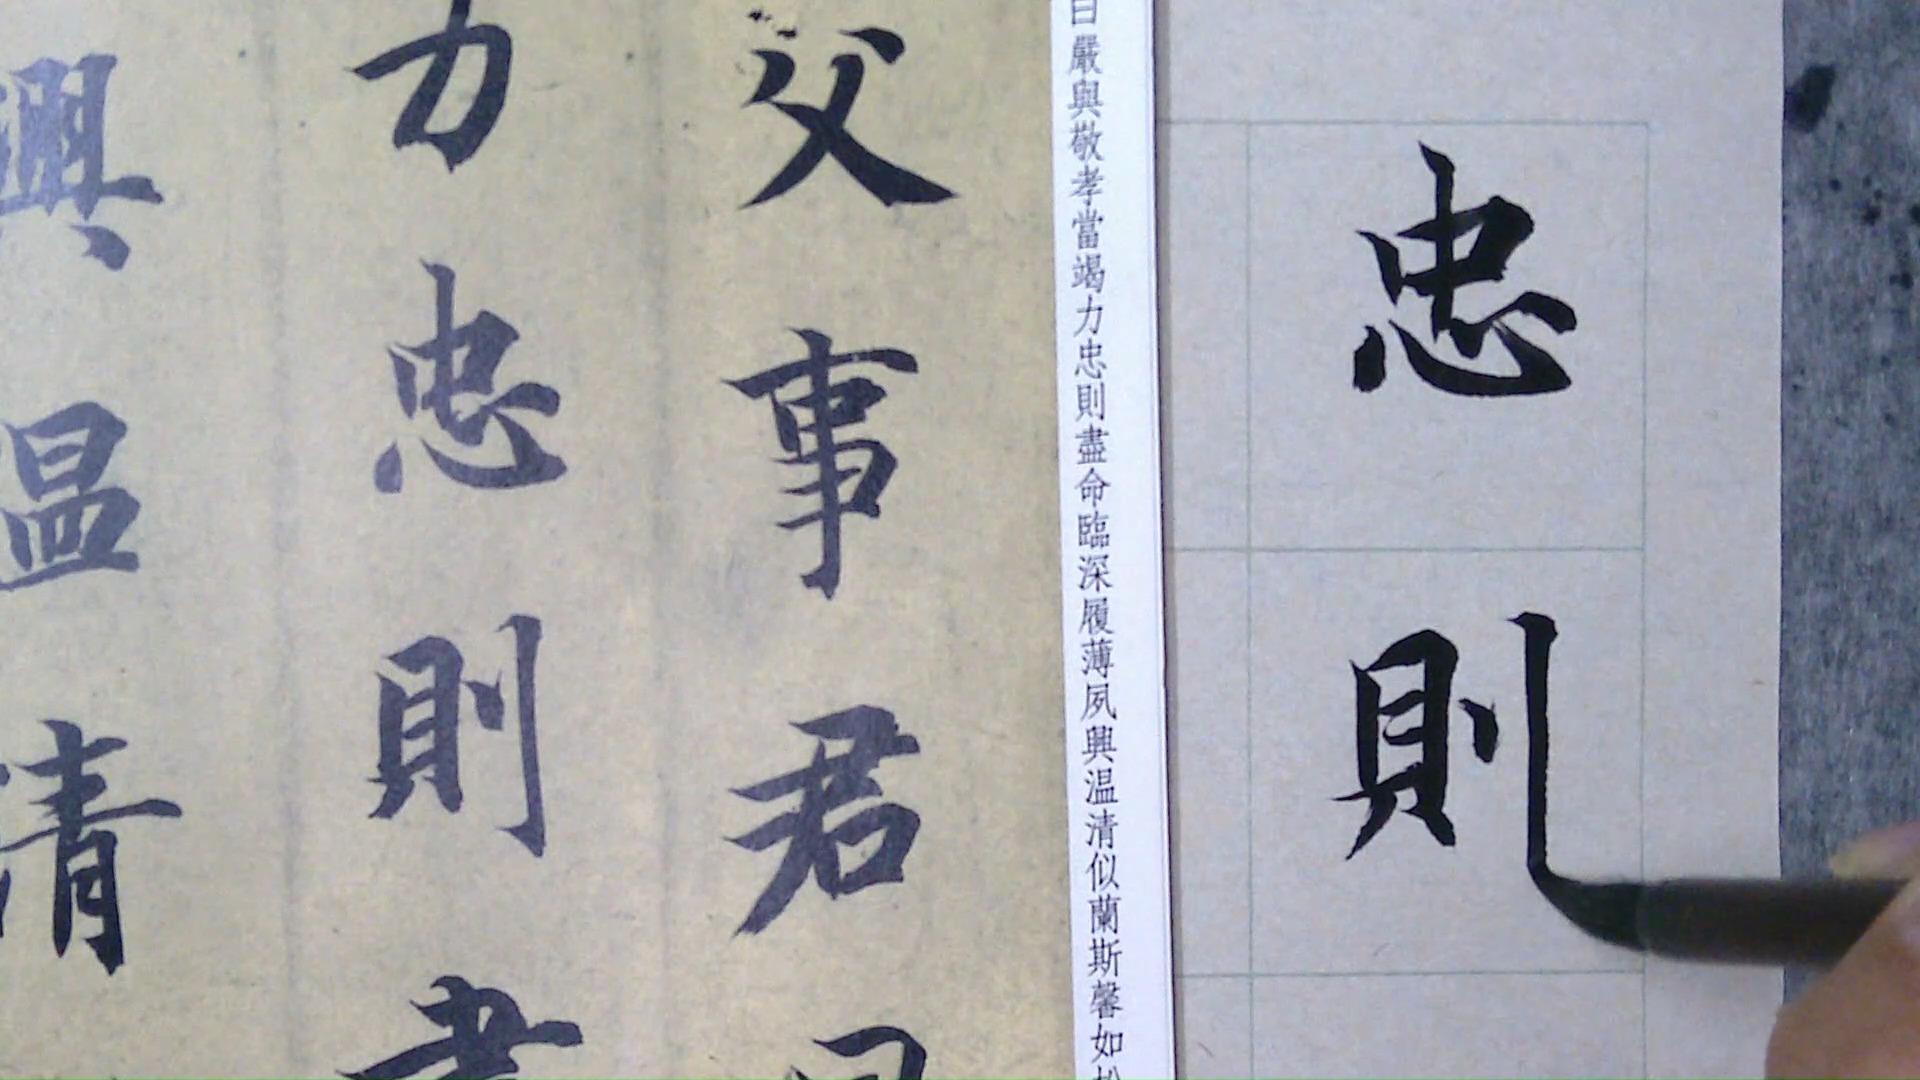 忠則
曰嚴與敬孝當竭力忠則盡命臨深履薄夙興温清似蘭斯馨如松
父事君曰
力忠則盡
興温清